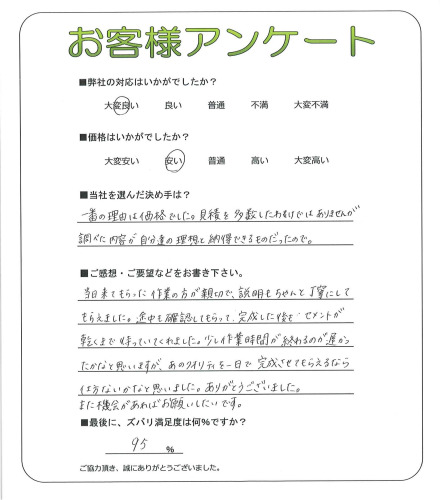 お客様アンケート
■弊社の対応はいかがでしたか？
大変良い 良い 普通 不満 大変不満
■価格はいかがでしたか？
大変安い 安い 普通 高い 大変高い
■当社を選んだ決め手は？
一番の理由は価格でした。見積を多数したわけではありませんが
調べた内容が自分達の理想と納得できるものだったので。
■ご感想・ご要望などをお書き下さい。
当日来てもらった作業の方が親切で、説明もちゃんと丁寧にして
もらえました。途中も確認してもらって、完成した後も、セメントが
乾くまで待っていてくれました。少し作業時間が終わるのが遅かっ
たかなと思いますが、あのクオリティを一日で完成させてもらえるなら
仕方ないかなと思いました。ありがとうございました。
また機会があればお願いしたいです。
■最後に、ズバリ満足度は何％ですか？
95 ％
ご協力頂き、誠にありがとうございました。